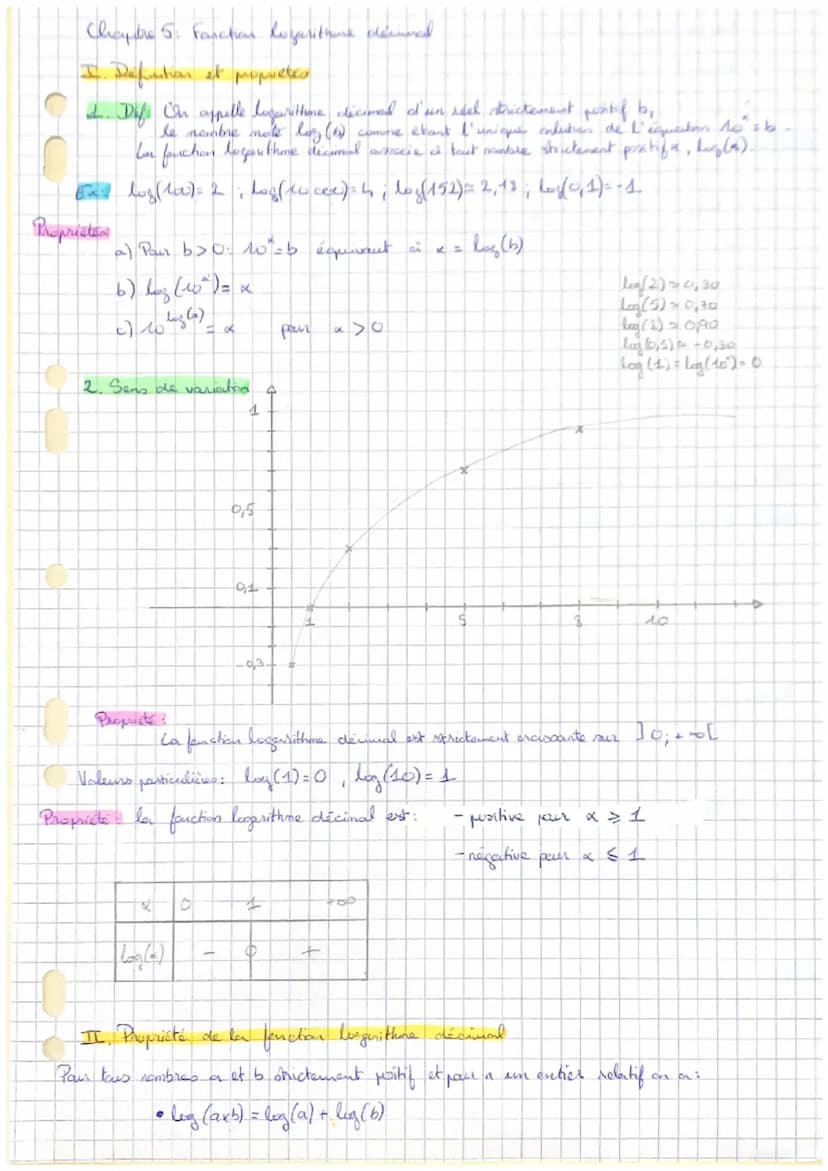 Chapitre 5: Fonction logarithme décimal
I. Définition et propriétés
1. Déf. On appelle logarithme décimal d'un réel strictement positif b,
le nombre noté log(b) comme étant l'unique solution de l'équation 10ˣ = b.
La fonction logarithme décimal associe à tout nombre strictement positif x, log(x).
Ex: log(100)= 2 ; log(10 000)= 4 ; log(152)≈ 2,18 ; log(0,1)= -1
Propriétés
a) Pour b>0: 10ˣ=b équivaut à x = log(b)
b) log(10ˣ)= x
c) 10^log(x) = x pour x > 0
log(2) ≈ 0,30
log(5) ≈ 0,70
log(8) ≈ 0,90
log(0,5) ≈ -0,30
log(1) = log(10⁰)= 0
2. Sens de variation
1
0,5
0,1
1 5 8 10
-0,3
Propriété:
La fonction logarithme décimal est strictement croissante sur ]0; +∞[
Valeurs particulières: log(1)=0 , log(10)= 1
Propriété: la fonction logarithme décimal est: - positive pour x ⩾ 1
- négative pour x ⩽ 1
x 0 1 +∞
log(x) - 0 +
II. Propriété de la fonction logarithme décimal
Pour tous nombres a et b strictement positif et pour n un entier relatif on a:
• log(axb) = log(a) + log(b)